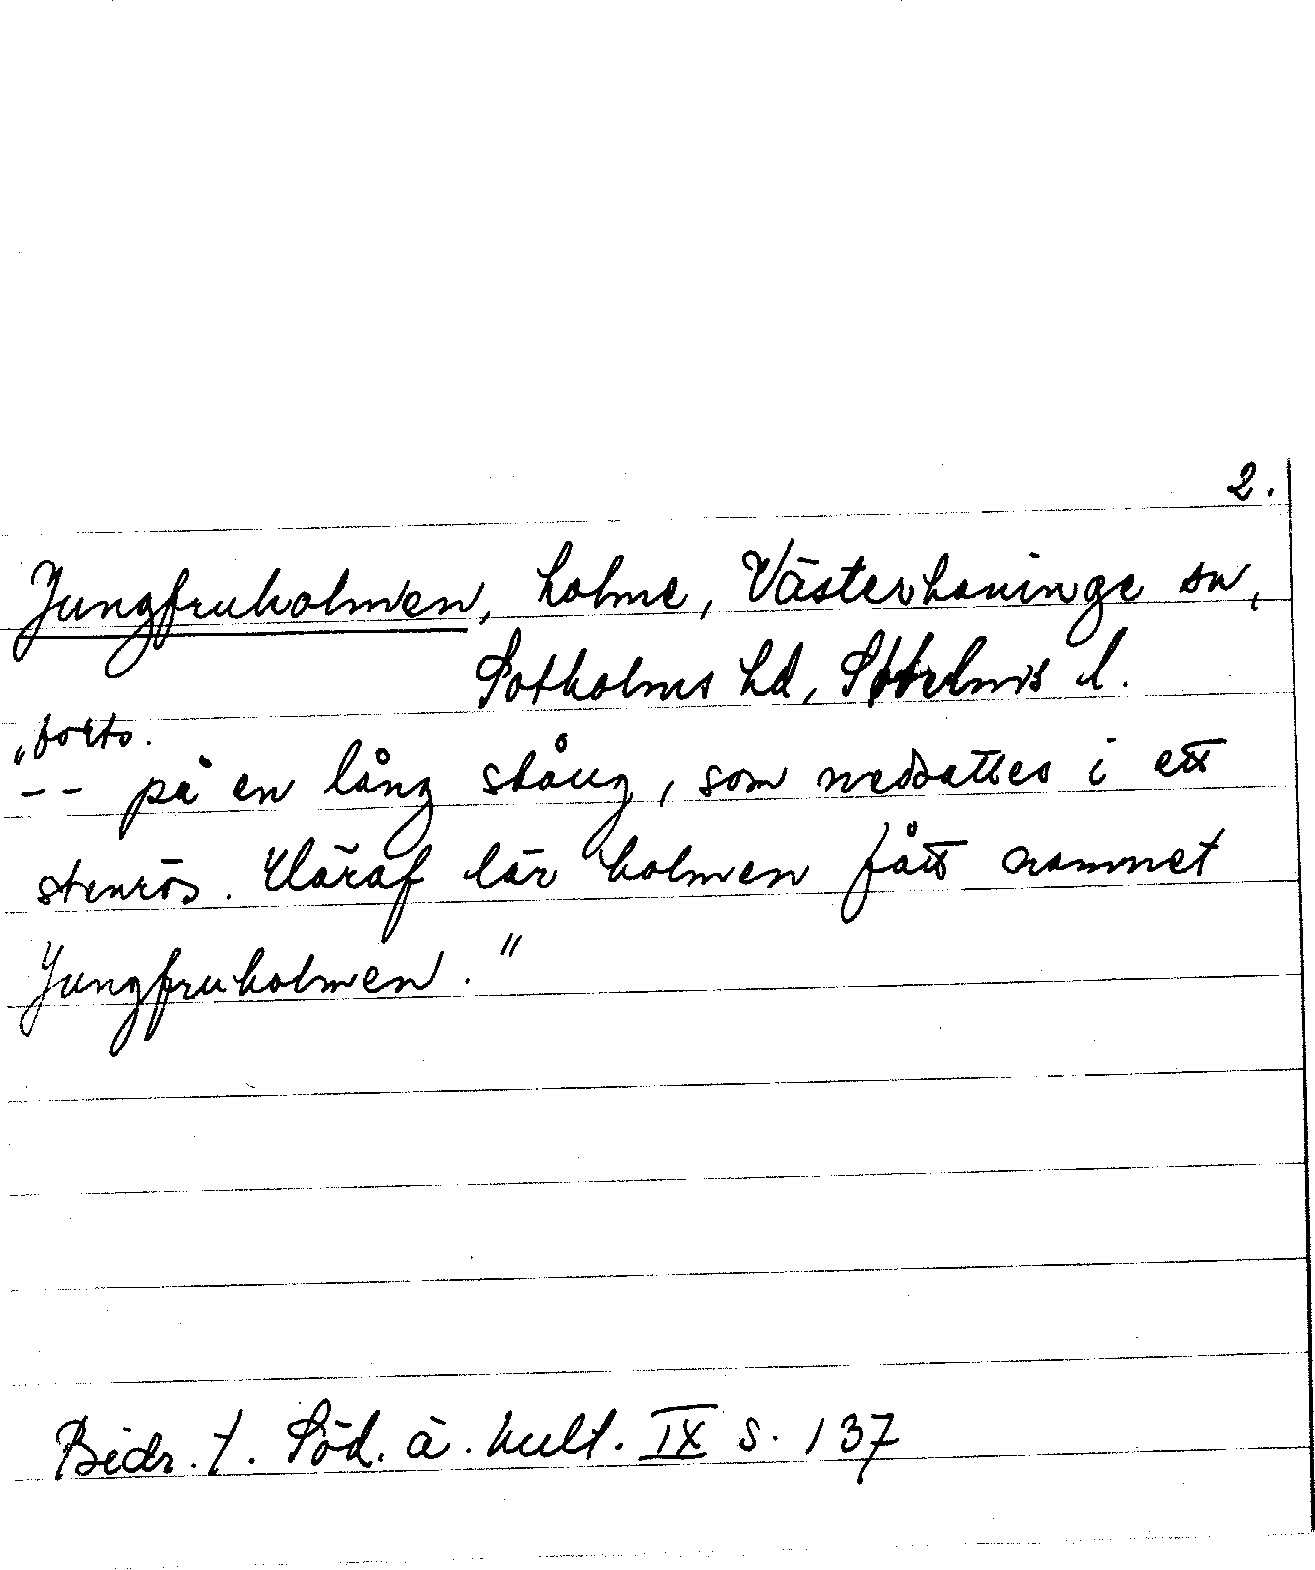 2.
Jungfruholmen, holme, Västerhaninge sn,
Sotholms hd, Sthlms l.
"forts.
-- på en lång stång, som nedsattes i ett
stenrös. Häraf lär holmen fått namnet
Jungfruholmen."
Bidr. t. Söd. ä. kult. IX s. 137